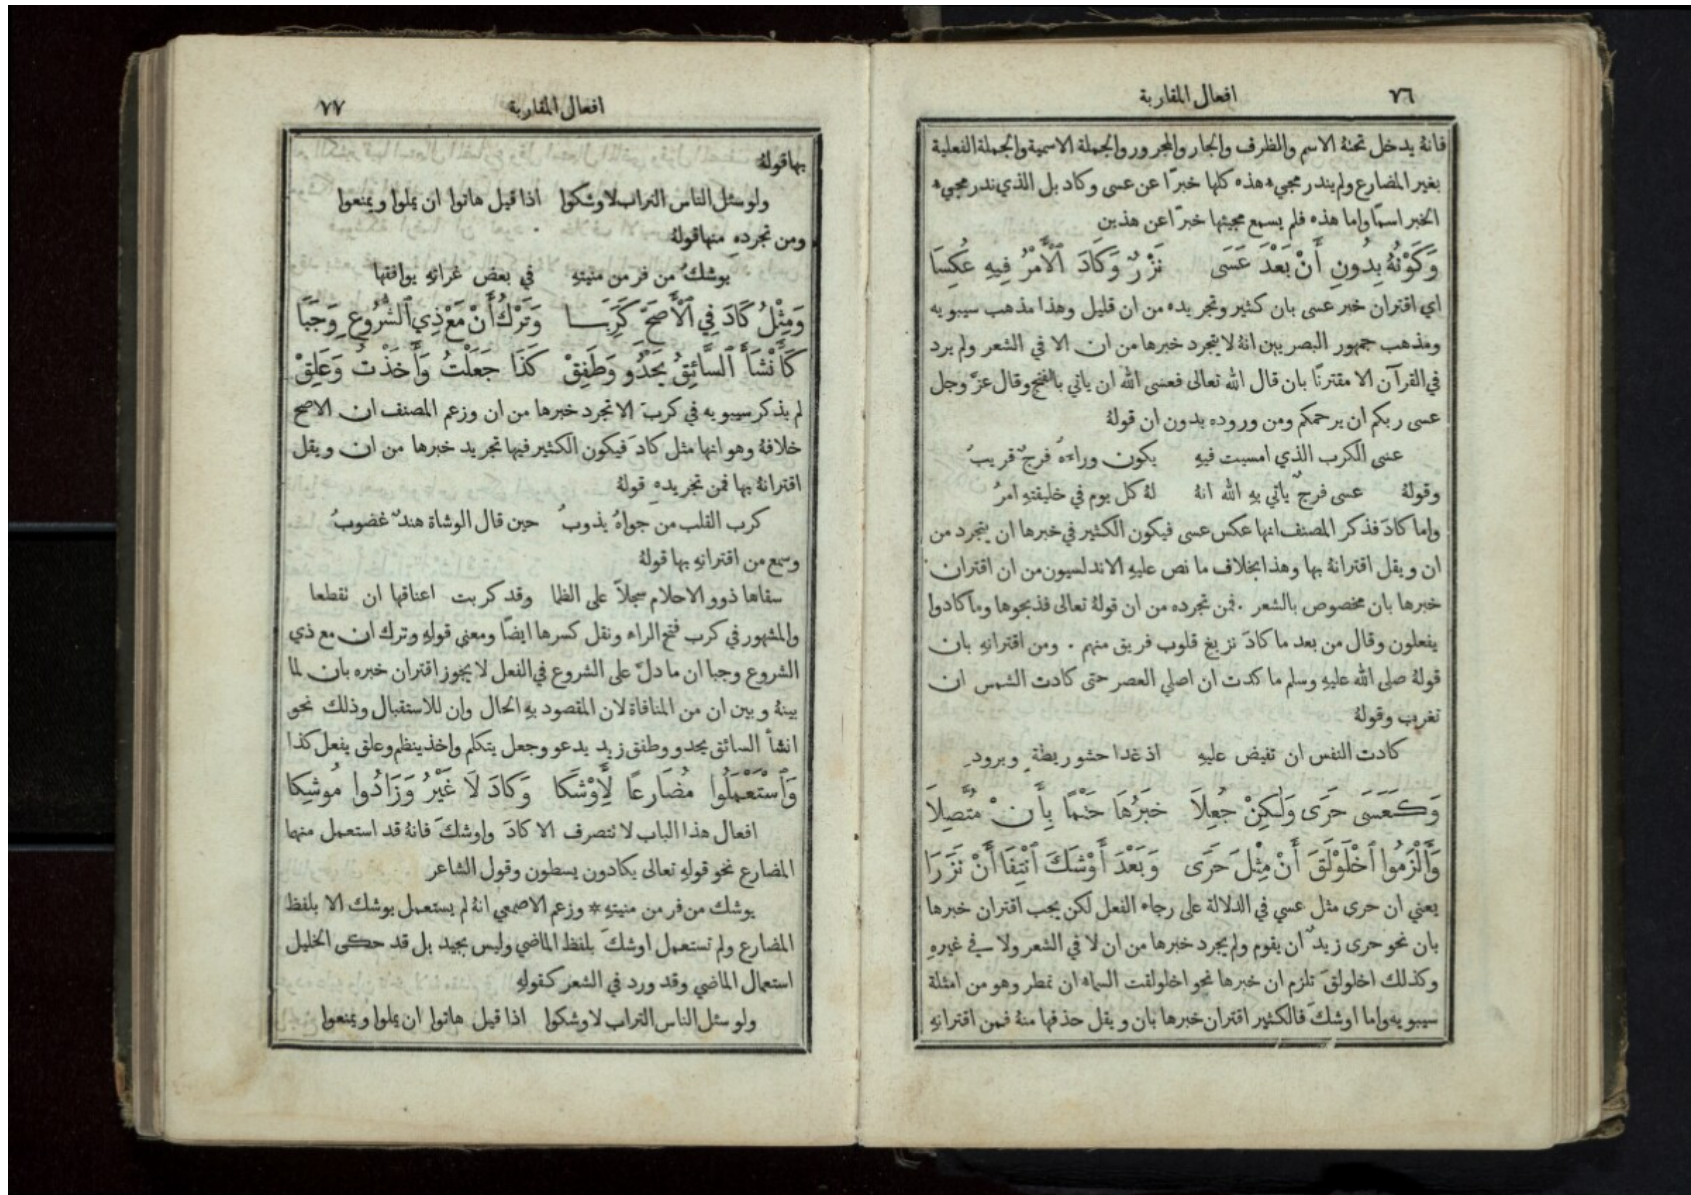 ٧٦ افعال المقاربة
فانهُ يدخل تحتهُ الاسم والظرف والجار والمجرور والجملة الاسمية والجملة الفعلية
بغير المضارع ولم يندر مجيء هذه كلها خبرًا عن عسى وكاد بل الذي ندر مجيء
الخبر اسمًا واما هذه فلم يسمع مجيئها خبرًا عن هذين
وَكَوْنُهُ بِدُونِ أَنْ بَعْدَ عَسَى نَزْرٌ وَكَادَ ٱلْأَمْرُ فِيهِ عُكِسَا
اي اقتران خبر عسى بان كثير وتجريده من ان قليل وهذا مذهب سيبويه
ومذهب جمهور البصريين انهُ لا يتجرد خبرها من ان الا في الشعر ولم يرد
في القرآن الا مقترنًا بان قال الله تعالى فعسى الله ان ياتي بالفتح وقال عزَّ وجل
عسى ربكم ان يرحمكم ومن وروده بدون ان قولهُ
عسى الكرب الذي امسيت فيهِ يكون وراءهُ فرجٌ قريبُ
وقولهُ عسى فرجٌ ياتي بهِ الله انهُ لهُ كل يوم في خليقتهِ امرُ
واما كادَ فذكر المصنف انها عكس عسى فيكون الكثير في خبرها ان يتجرد من
ان ويقل اقترانهُ بها وهذا بخلاف ما نص عليهِ الاندلسيون من ان اقتران
خبرها بان مخصوص بالشعر . فمن تجرده من ان قولهُ تعالى فذبحوها وما كادوا
يفعلون وقال من بعد ما كادَ تزيغ قلوب فريق منهم . ومن اقترانهِ بان
قولهُ صلى الله عليهِ وسلم ما كدت ان اصلي العصر حتى كادت الشمس ان
تغرب وقولهُ
كادت النفس ان تفيض عليهِ اذ غدا حشو ريطةٍ وبرودِ
وَكَعَسَى حَرَى وَلٰكِنْ جُعِلَا خَبَرُهَا حَتْمًا بِأَنْ مُتَّصِلَا
وَأَلْزَمُوا ٱخْلَوْلَقَ أَنْ مِثْلَ حَرَى وَبَعْدَ أَوْشَكَ ٱنْتِفَا أَنْ نَزَرَا
يعني ان حرى مثل عسى في الدلالة على رجاء الفعل لكن يجب اقتران خبرها
بان نحو حرى زيدٌ ان يقوم ولم يجرد خبرها من ان لا في الشعر ولا في غيرهِ
وكذلك اخلولقَ تلزم ان خبرها نحو اخلولقت السماء ان تمطر وهو من امثلة
سيبويه واما اوشكَ فالكثير اقتران خبرها بان ويقل حذفها منهُ فمن اقترانهِ
افعال المقاربة ٧٧
بها قولهُ
ولو سئل الناس التراب لاوشكوا اذا قيل هاتوا ان يملوا ويمنعوا
ومن تجردهِ منها قولهُ
يوشكُ من فر من منيتهِ في بعض غراتهِ يوافقها
وَمِثْلُ كَادَ فِي ٱلْأَصَحِّ كَرَبَـا وَتَرْكُ أَنْ مَعْ ذِي ٱلشُّرُوعِ وَجَبَا
كَأَنْشَأَ ٱلسَّائِقُ يَحْدُو وَطَفِقْ كَذَا جَعَلْتُ وَأَخَذْتُ وَعَلِقْ
لم يذكر سيبويه في كربَ الا تجرد خبرها من ان وزعم المصنف ان الاصح
خلافهُ وهو انها مثل كادَ فيكون الكثير فيها تجريد خبرها من ان ويقل
اقترانهُ بها فمن تجريدهِ قولهُ
كرب القلب من جواهُ يذوبُ حين قال الوشاة هندٌ غضوبُ
وسمع من اقترانهِ بها قولهُ
سقاها ذوو الاحلام سجلاً على الظما وقد كربت اعناقها ان تقطعا
والمشهور في كرب فتح الراء ونقل كسرها ايضًا ومعنى قولهِ وترك ان مع ذي
الشروع وجبا ان ما دلَّ على الشروع في الفعل لا يجوز اقتران خبره بان لما
بينهُ وبين ان من المنافاة لان المقصود بهِ الحال وان للاستقبال وذلك نحو
انشأ السائق يحدو وطفق زيد يدعو وجعل يتكلم واخذ ينظم وعلق يفعل كذا
وَٱسْتَعْمَلُوا مُضَارِعًا لِأَوْشَكَا وَكَادَ لَا غَيْرُ وَزَادُوا مُوشِكَا
افعال هذا الباب لا تتصرف الا كادَ واوشكَ فانهُ قد استعمل منها
المضارع نحو قولهِ تعالى يكادون يسطون وقول الشاعر
يوشك من فر من منيتهِ * وزعم الاصمعي انهُ لم يستعمل يوشك الا بلفظ
المضارع ولم تستعمل اوشكَ بلفظ الماضي وليس بجيد بل قد حكى الخليل
استعمال الماضي وقد ورد في الشعر كقولهِ
ولو سئل الناس التراب لاوشكوا اذا قيل هاتوا ان يملوا ويمنعوا